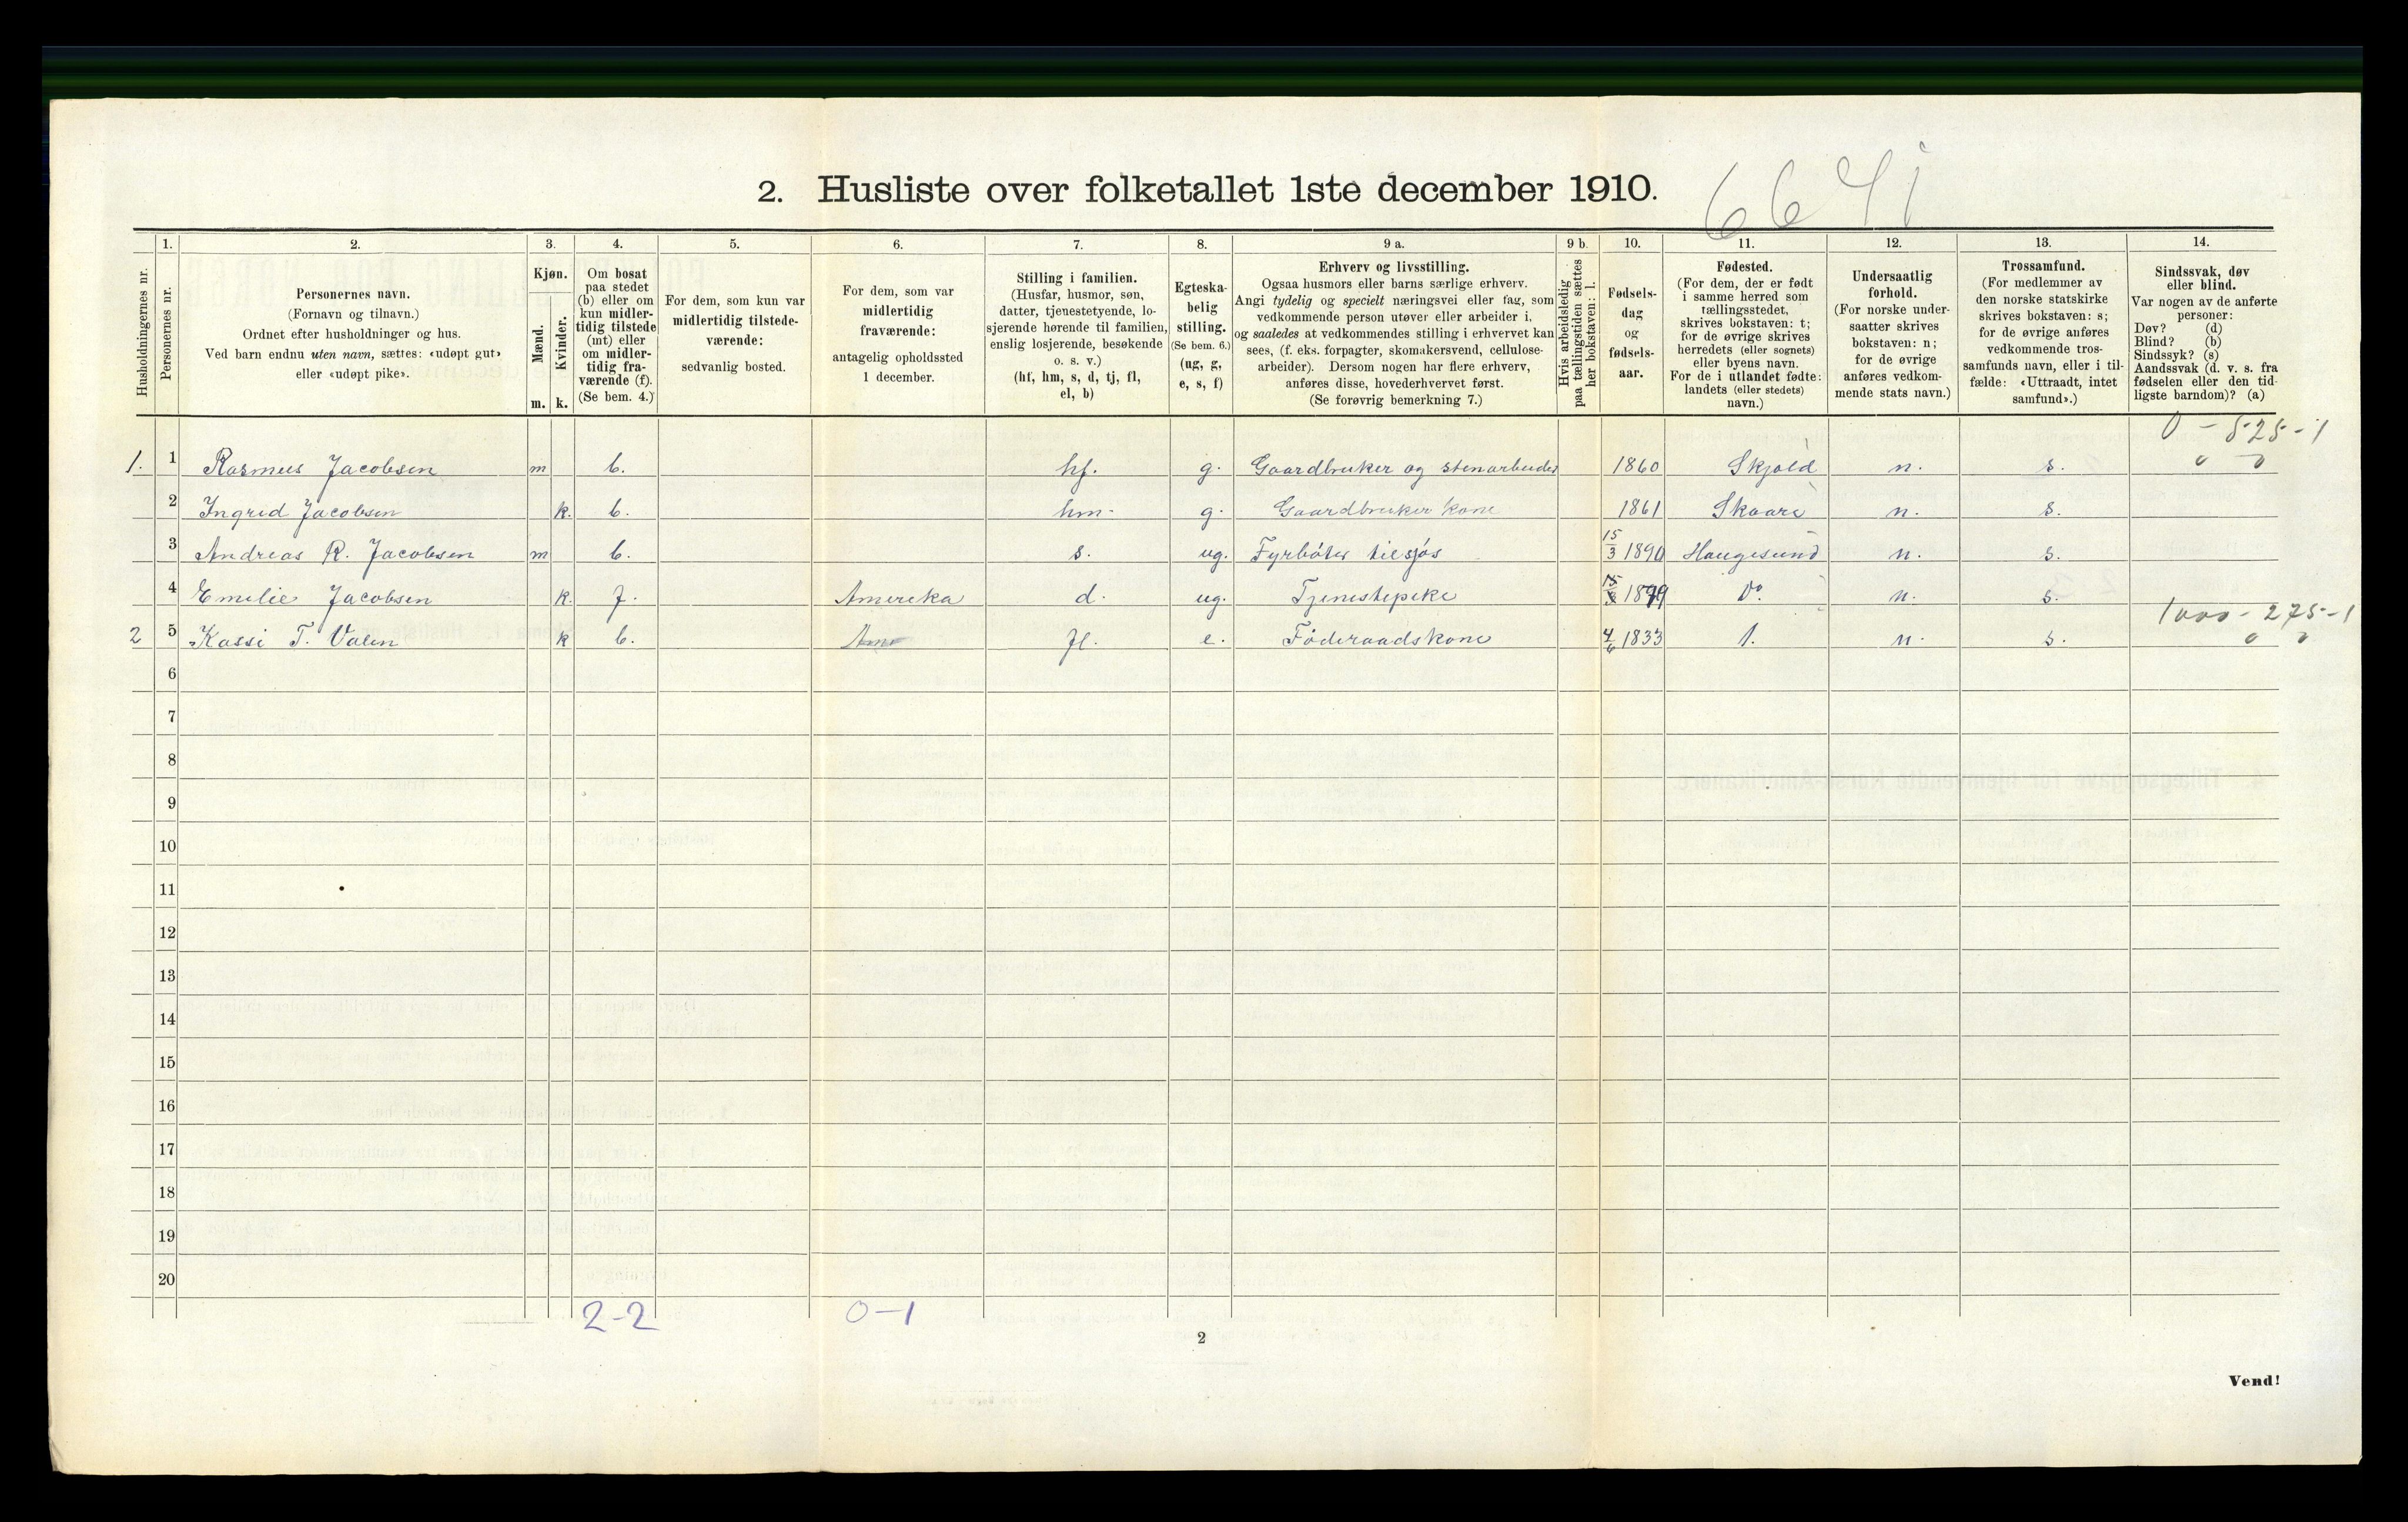 2. Husliste over folketallet 1ste december 1910.
1. 2. 3. 4. 5. 6. 7. 8. 9 a. 9 b. 10. 11. 12. 13. 14.
Husholdningernes nr.
Personernes nr.
Personernes navn.
(Fornavn og tilnavn.)
Ordnet efter husholdninger og hus.
Ved barn endnu uten navn, sættes: «udøpt gut»
eller «udøpt pike».
Kjøn.
Mænd.
Kvinder.
m. k.
Om bosat
paa stedet
(b) eller om
kun midler-
tidig tilstede
(mt) eller
om midler-
tidig fra-
værende (f).
(Se bem. 4.)
For dem, som kun var
midlertidig tilstede-
værende:
sedvanlig bosted.
For dem, som var
midlertidig
fraværende:
antagelig opholdssted
1 december.
Stilling i familien.
(Husfar, husmor, søn,
datter, tjenestetyende, lo-
sjerende hørende til familien,
enslig losjerende, besøkende
o. s. v.)
(hf, hm, s, d, tj, fl,
el, b)
Egteska-
belig
stilling.
(Se bem. 6.)
(ug, g,
e, s, f)
Erhverv og livsstilling.
Ogsaa husmors eller barns særlige erhverv.
Angi tydelig og specielt næringsvei eller fag, som
vedkommende person utøver eller arbeider i,
og saaledes at vedkommendes stilling i erhvervet kan
sees, (f. eks. forpagter, skomakersvend, cellulose-
arbeider). Dersom nogen har flere erhverv,
anføres disse, hovederhvervet først.
(Se forøvrig bemerkning 7.)
Hvis arbeidsledig
paa tællingstiden sættes
her bokstaven: l.
Fødsels-
dag
og
fødsels-
aar.
Fødested.
(For dem, der er født
i samme herred som
tællingsstedet,
skrives bokstaven: t;
for de øvrige skrives
herredets (eller sognets)
eller byens navn.
For de i utlandet fødte:
landets (eller stedets)
navn.)
Undersaatlig
forhold.
(For norske under-
saatter skrives
bokstaven: n;
for de øvrige
anføres vedkom-
mende stats navn.)
Trossamfund.
(For medlemmer av
den norske statskirke
skrives bokstaven: s;
for de øvrige anføres
vedkommende tros-
samfunds navn, eller i til-
fælde: «Uttraadt, intet
samfund».)
Sindssvak, døv
eller blind.
Var nogen av de anførte
personer:
Døv? (d)
Blind? (b)
Sindssyk? (s)
Aandssvak (d. v. s. fra
fødselen eller den tid-
ligste barndom)? (a)
0 - 525 - 1
1. 1 Rasmus Jacobsen m b. hf. g. Gaardbruker og stenarbeider 1860 Skjold n. s. 0 0
2 Ingrid Jacobsen k. b. hm. g. Gaardbruker kone 1861 Skaare n. s.
3 Andreas R. Jacobsen m b. s. ug. Fyrbøter tilsjøs 15/3 1890 Haugesund n. s.
4 Emelie Jacobsen k. f. Amereka d. ug. Tjenestepike Do. n. s.
1000 - 275 - 1
2 5 Kassi T. Valen k b. Am fl. e. Føderaadskone 4/6 1833 n. s. 0 0
6
7
8
9
10
11
12
13
14
15
16
17
18
19
20
2-2 0-1
2
Vend!